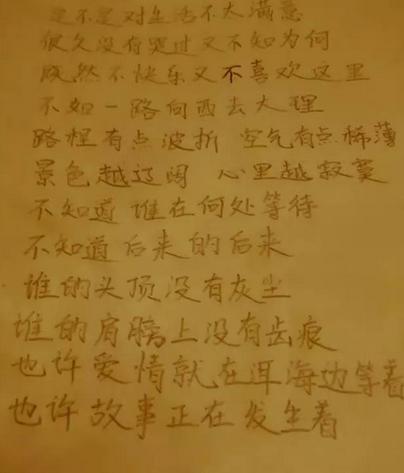 是不是对生活不太满意
很久没有哭过又不知为何
既然不快乐又不喜欢这里
不如一路向西去大理
路程有点波折 空气有点稀薄
景色越辽阔 心里越寂寞
不知道 谁在何处等待
不知道 后来的后来
谁的头顶没有灰尘
谁的肩膀上没有齿痕
也许爱情就在洱海边等着
也许故事正在发生着